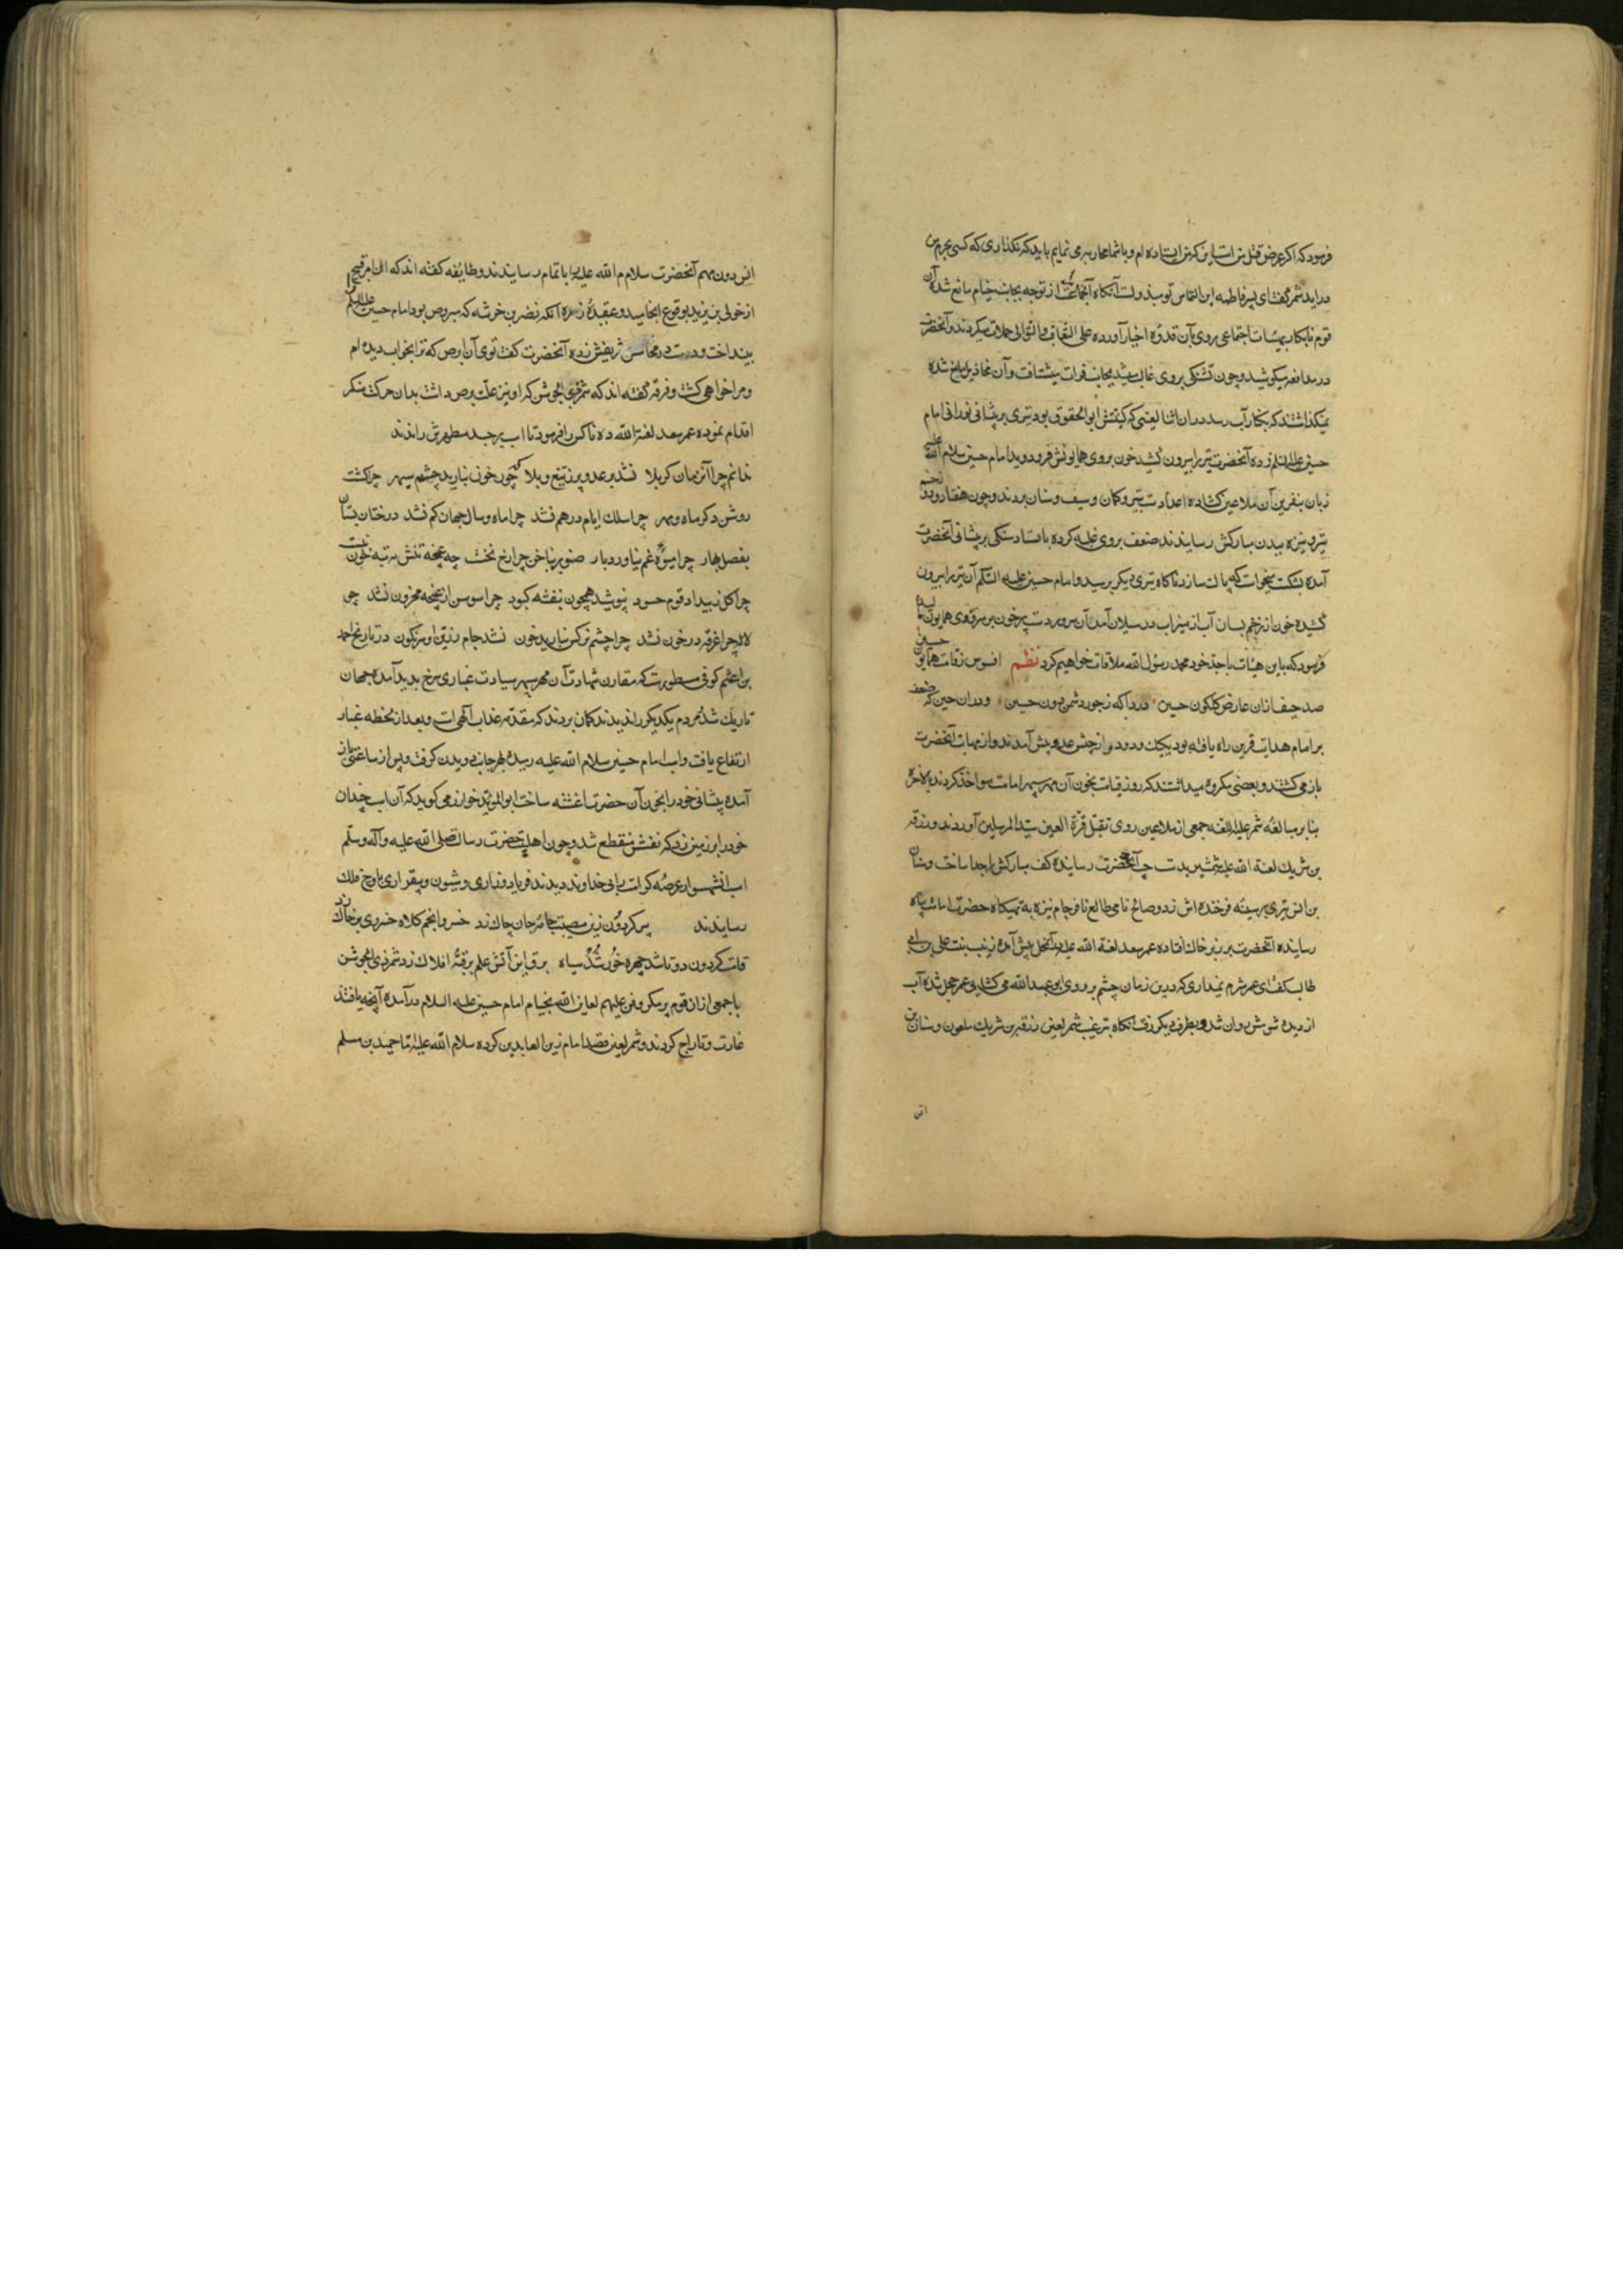 فرمود که اگر غرض قتل من است این که من ایستاده ام و با شما محاربه می نمایم باید که نگذاری که کسی بحرم من
دراید شمر گفت ای پسر فاطمه این التماس تو مبذولست آنگاه آنجماعت را از توجه بجانب خیام مانع شده آن
قوم نابکار بهیئات اجتماعی روی بآن قدوه اخیار آورده علی التعاقب والتوالی حملات میکردند و آنحضرت
در مدافعه میکوشید و چون تشنکی بروی غالب میشد بجانب فرات میشتافت و آن مخاذیل مانع شده
نمیکذاشتند که بکنار آب رسد در ان اثنا لعینی که کنیتش ابوالحقوق بود تیری بر پیشانی نورانی امام
حسین علیه السلم زده آنحضرت تیر را بیرون کشید خون بروی همایونش فرو دوید امام حسین سلام الله علیه
زبان بنفرین آن ملاعین کشاده اعدا دست بتیر و کمان و سیف و سنان بردند و چون هفتاد و دو زخم
تیر و نیزه ببدن مبارکش رسانیدند ضعف بروی غلبه کرده باستاد سنکی بر پیشانی آنحضرت
آمده بشکست میخواست که پاک سازد ناکاه تیری دیکر برسید و امام حسین علیه السلم آن تیر را بیرون
کشیده خون از زخم بسان آب از میزاب در سیلان آمد آن سرور دست پر خون بر سر و روی همایون مالیده
فرمود که باین هیئات با جد خود محمد رسول الله ملاقات خواهیم کرد نظم افسوس ز قامت همایون حسین
صد حیف ازان عارض کلکون حسین دردا که ز جور دشمن دون حسین و دران حین که ضعف
بر امام هدایت قرین راه یافته بود ییکیک و دودو از جیش عدو پیش آمدند و از مهابت آنحضرت
باز می کشتند و بعضی مکروه میدانستند که روز قیامت بخون آن مهر سپهر امامت مواخذ کردند بالاخره
بنا بر مبالغه شمر علیه اللعنه جمعی از ملاعین روی بقتل قرة العین سید المرسلین آوردند و زرقه
بن شریک لعنة الله علیه شمشیر بدست چپ آنحضرت رسانیده کف مبارکش را جدا ساخت و سنان
بن انس تیری بر سینه فرخنده اش زد و صالح نامی طالع نافرجام نیزه به تهیکاه حضرت امامت پناه
رسانیده آنحضرت بر زبر خاک افتاده عمر سعد لعنة الله علیه بدانمحل پیش آمده زینب بنت علی بن ابی
طالب کفت ای عمر شرم نمیداری که درین زمان چشم بر روی ابو عبد الله می کشایی عمر خجل شده آب
از دیده شومش روان شد و بطرف دیکر رفت آنکاه بترغیب شمر لعین زرقه بن شریک ملعون و سنان بن
انس
انس دون مهم آنحضرت سلام الله علیه را باتمام رسانیدند و طایفه کفته اند که ان امر قبیح
از خولی بن یزید بوقوع انجامید و عقیده زمره آنکه نضر بن خرشه که مبروص بود امام حسین علیه السلم را
بینداخت و دست در محاسن شریفش زده آنحضرت کفت توی آن ابرص که ترا بخواب دیده ام
و مرا خواهی کشت و فرقه کفته اند که شمر ذی الجوشن که او نیز علت برص داشت بدان حرکت منکر
اقدام نموده عمر سعد لعنه الله ده ناکس را فرمود تا اسب بر جسد مطهرش راندند
ندانم چرا آن زمان کربلا نشد بر عدو پر ز تیغ و بلا چو خون نبارید چشم سپهر چرا کشت
روشن دکر ماه و مهر چرا سلک ایام درهم نشد چرا ماه و سال جهان کم نشد درختان بستان
بفصل بهار چرا میوه غم نیاورد بار صنوبر بناخن چرا رخ نخست چه غنچه تنش ته بته خون نبست
چرا کل ز بیداد قوم حسود نپوشید همچون بنفشه کبود چرا سوسن از غنچه محزون نشد چو
لاله چرا غرقه در خون نشد چرا چشم نرکس نبارید خون نشد جام زرین او سرنکون در تاریخ احمد
بن اعثم کوفی مسطورست که مقارن شهادت آن مهر سپهر سیادت غباری سرخ بدید آمده جهان
تاریک شد و مردم یکدیکر را ندیدند کمان بردند که مقدمه عذاب آلهی است و بعد از لحظه غبار
ارتفاع یافت و اسب امام حسین سلام الله علیه رمیده بهر جانب دویدن کرفت و پس از ساعتی باز
آمده پیشانی خود را بخون آن حضرت اغشته ساخت ابو المؤید خوارزمی کوید که آن اسب چندان
خود را بر زمین زد که نفسش منقطع شد و چون اهلبیت حضرت رسالت صلی الله علیه و آله وسلم
اسب آن شهسوار عرصه کرامت را بی خداوند دیدند فریاد و زاری و شیون و بیقراری باوج فلک
رسانیدند پیر کردون زین مصیبت جامه جان چاک زد خسرو انجم کلاه خسروی بر خاک زد
قامت کردون دوتا شد چهره خورشد سیاه برق این آتش علم بر قبه افلاک زد شمر ذی الجوشن
با جمعی از ان قوم پر مکر و فن علیهم لعاین الله بخیام امام حسین علیه السلام درآمده آنچه یافتند
غارت و تاراج کردند و شمر لعین قصد امام زین العابدین کرده سلام الله علیه تا حمید بن مسلم